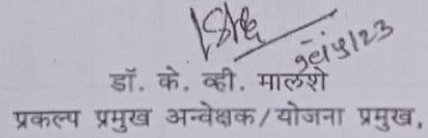 १८/५/23
डॉ. के. व्ही. मालशे
प्रकल्प प्रमुख अन्वेक्षक/योजना प्रमुख,